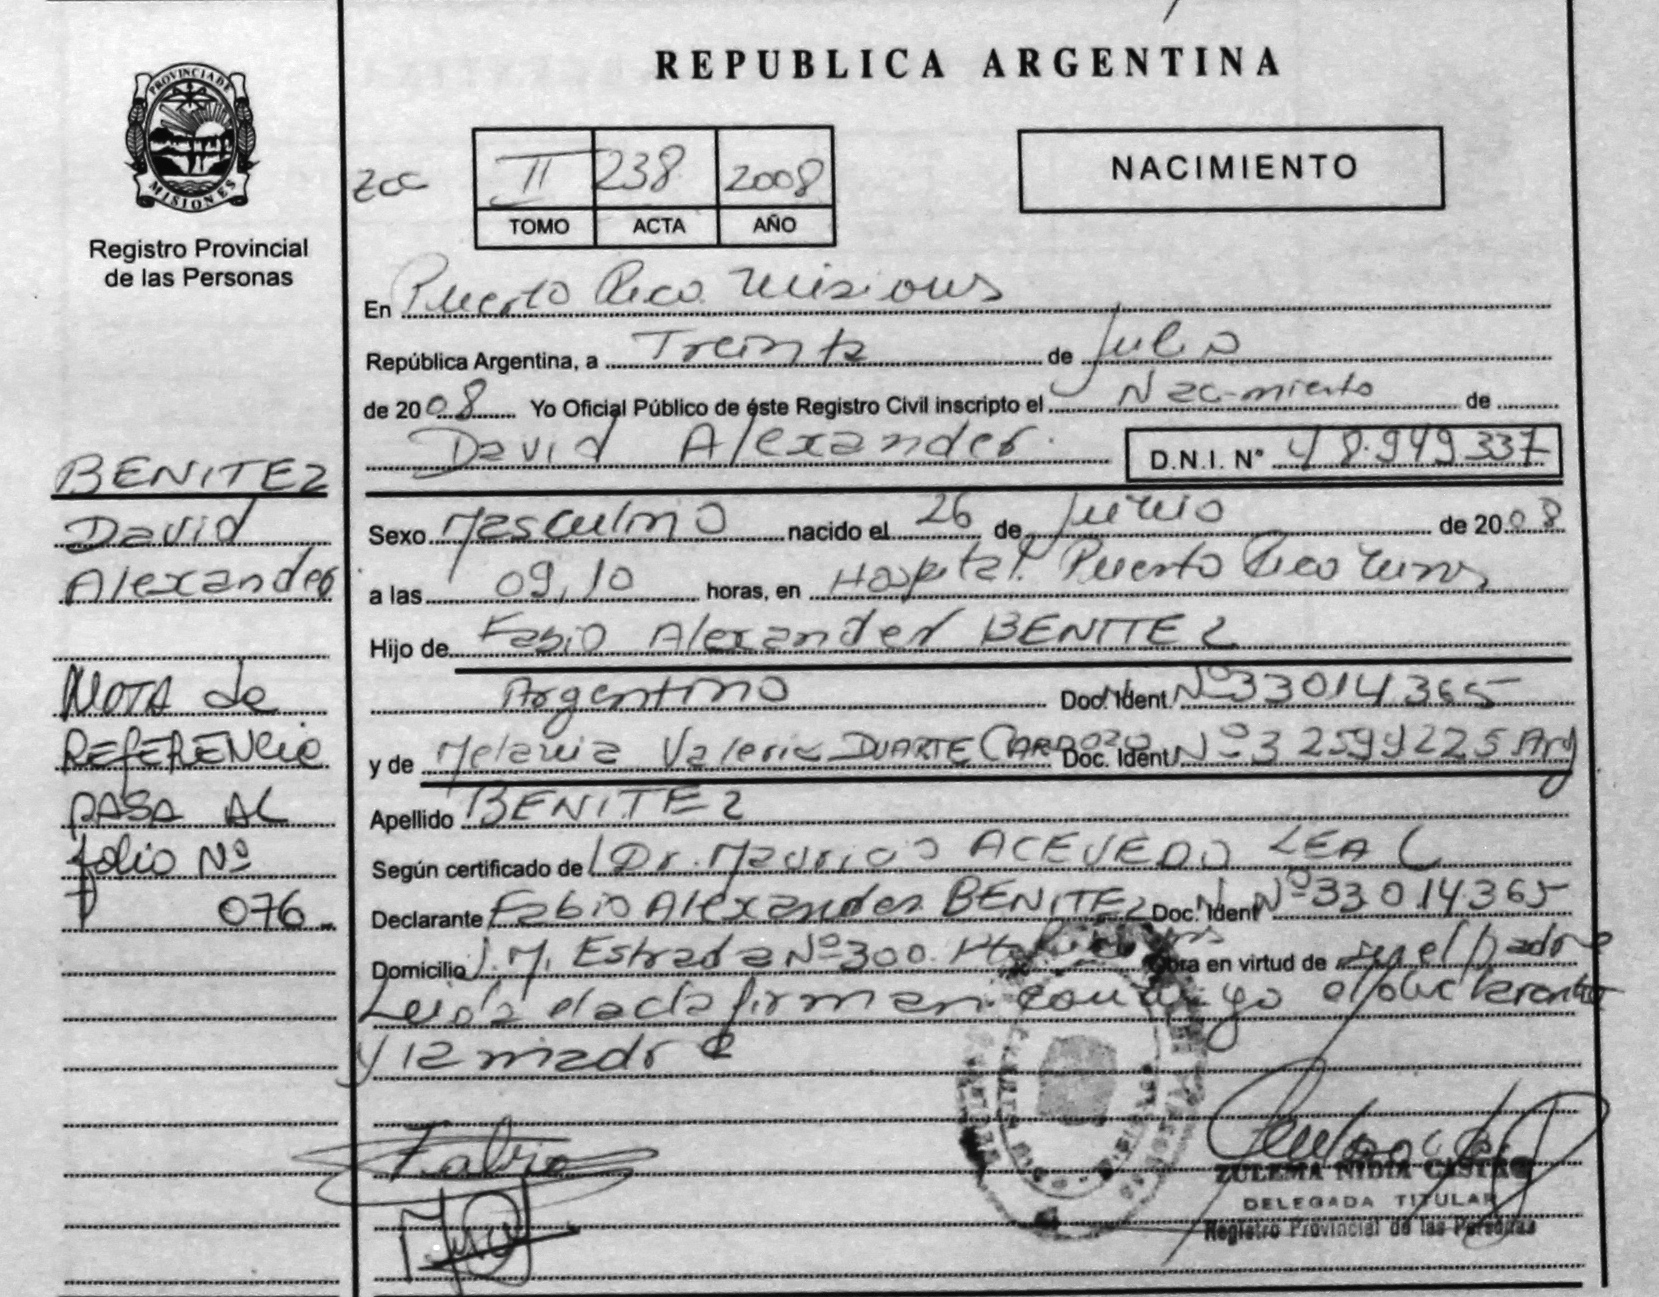 REPUBLICA ARGENTINA
PROVINCIA DE
MISIONES
Registro Provincial
de las Personas
II 238 2008
TOMO ACTA AÑO
NACIMIENTO
En Puerto Rico Misiones
República Argentina, a Treinta de Julio
de 2008 Yo Oficial Público de éste Registro Civil inscripto el Nacimiento de
David Alexander. D.N.I. N° 48.949.337
Sexo Masculino nacido el 26 de Junio de 2008
a las 09,10 horas, en Hospital Puerto Rico
Hijo de Fabio Alexander BENITEZ
Argentino Doc. Ident. Nº 33014365
y de Melania Valeria DUARTE CARDOZO Doc. Ident. Nº 32599225 Arg
Apellido BENITEZ
Según certificado de Dr. Mauricio ACEVEDO LEAL
Declarante Fabio Alexander BENITEZ Doc. Ident Nº 33014365
Domicilio J.M. Estrada Nº 300. Obra en virtud de ser el padre
Leida el acta firman conmigo el declarante
y la madre
BENITEZ
David
Alexander
NOTA de
REFERENCIA
PASA AL
folio Nº
076
Fabio
ZULEMA NIDIA CASTRO
DELEGADA TITULAR
Registro Provincial de las Personas